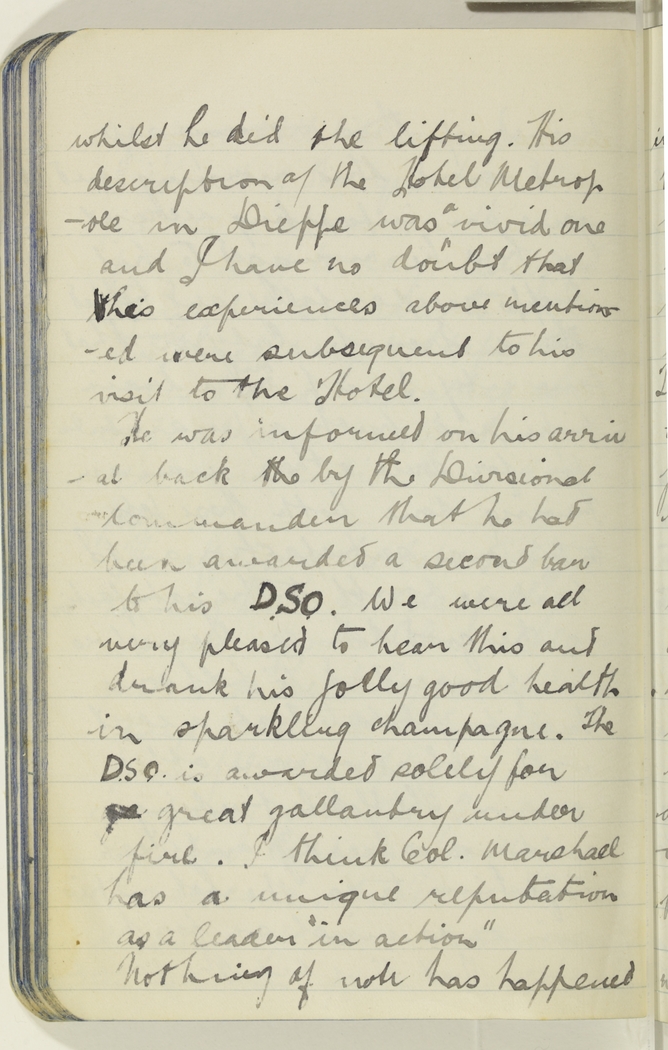 whilst he did the lifting. His
description of the Hotel Metrop
-ole in Dieppe was a vivid one
and I have no doubt that
his experiences above mention
-ed were subsequent to his
visit to the Hotel.
He was informed on his arriv
-al back the by the Divisional
Commander that he had
been awarded a second bar
to his D.S.O. We were all
very pleased to hear this and
drank his jolly good health
in sparkling champagne. The
D.S.O. is awarded solely for
great gallantry under
fire. I think Col. Marshall
has a unique reputation
as a leader "in action"
Nothing of note has happened